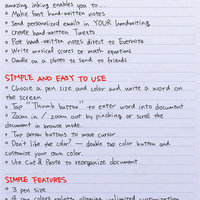 amazing inking enables you to...
○ Make fast hand-written notes
○ Send personalized emails in YOUR handwriting
○ Create hand-written Tweets
○ Post hand-written notes direct to Evernote
○ Write musical scores or math equations
○ Doodle on a photo to send to friends
SIMPLE AND EASY TO USE
○ Choose a pen size and color and write a word on the screen
○ Tap "Thumb button" to enter word into document
○ Zoom in / zoom out by pinching or scroll the document in browse mode.
○ Tap arrow buttons to move cursor
○ Don't like the color – double tap color button and customize your own color.
○ Use Cut & Paste to reorganize document
SIMPLE FEATURES
○ 3 pen size